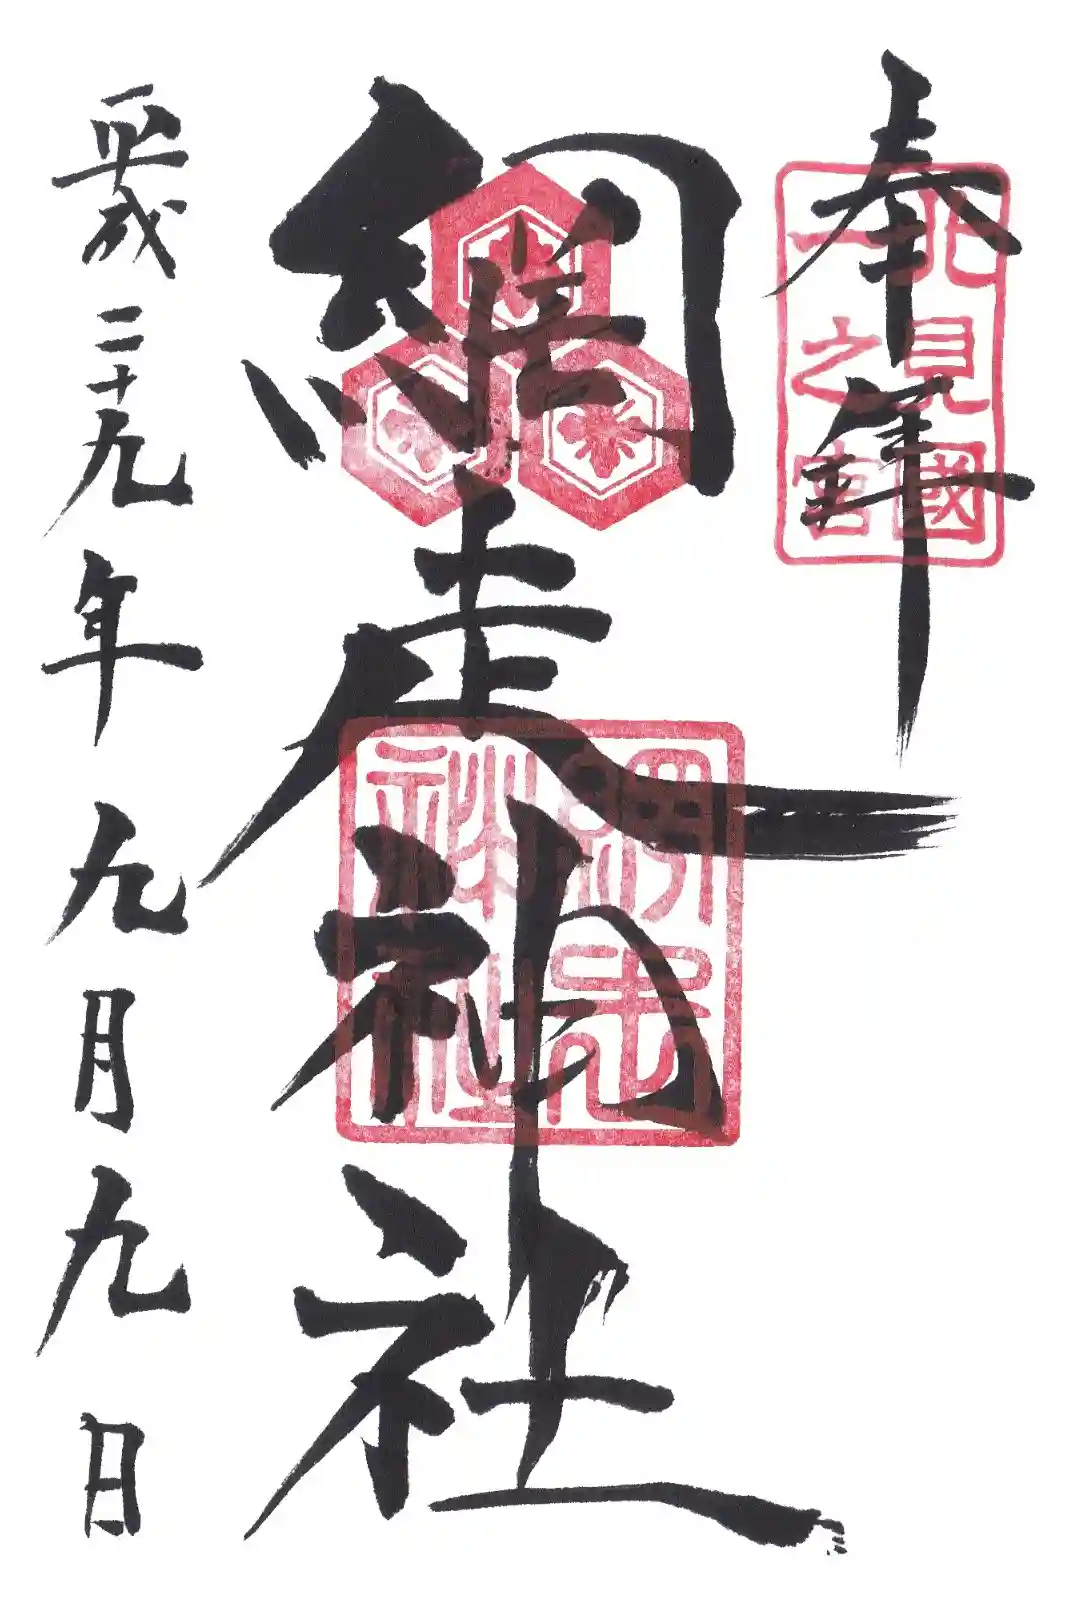 奉拝
北見國
一之宮
網走神社
網走
神社
平成二十九年九月九日